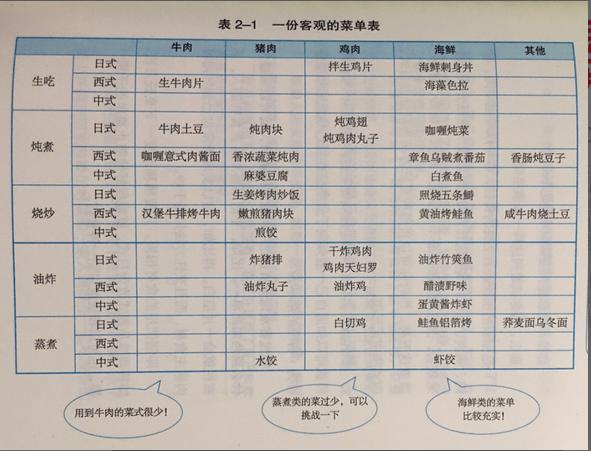 表 2-1 一份客观的菜单表
牛肉 猪肉 鸡肉 海鲜 其他
生吃
日式 拌生鸡片 海鲜刺身丼
西式 生牛肉片 海藻色拉
中式
炖煮
日式 牛肉土豆 炖肉块 炖鸡翅 咖喱炖菜
炖鸡肉丸子
西式 咖喱意式肉酱面 香浓蔬菜炖肉 章鱼乌贼煮番茄 香肠炖豆子
中式 麻婆豆腐 白煮鱼
烧炒
日式 生姜烤肉炒饭 照烧五条鰤
西式 汉堡牛排烤牛肉 嫩煎猪肉块 黄油烤鲑鱼 咸牛肉烧土豆
中式 煎饺
油炸
日式 炸猪排 干炸鸡肉 油炸竹荚鱼
鸡肉天妇罗
西式 油炸丸子 油炸鸡 醋渍野味
中式 蛋黄酱炸虾
蒸煮
日式 白切鸡 鲑鱼铝箔烤 荞麦面乌冬面
西式
中式 水饺 虾饺
用到牛肉的菜式很少!
蒸煮类的菜过少,可以
挑战一下
海鲜类的菜单
比较充实!